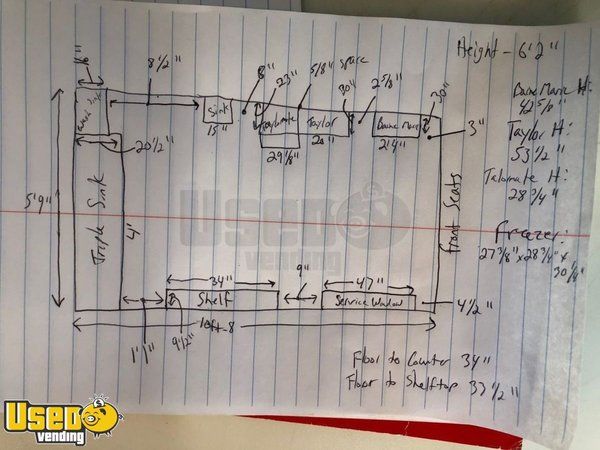 Height - 6'2"
6"
8 1/2"
8"
23"
5/8" space
30"
2 5/8"
30"
Baine Marie H:
42 5/8"
Sink
15"
Taylormate
Taylor
Baine Marie
3"
Taylor H:
53 1/2"
20 1/2"
29 1/8"
20"
21 4"
Talormate H:
28 3/4"
5'9"
Triple Sink
4'
Front Seats
Frezer:
27 3/8" x 28 3/4" x
30 1/4"
Used
vending
34"
9"
47"
Shelf
Service Window
4 1/2"
1' 1"
9 1/2"
10ft - 8
Floor to Counter 34"
Floor to Shelftop 33 1/2"
Used
vending